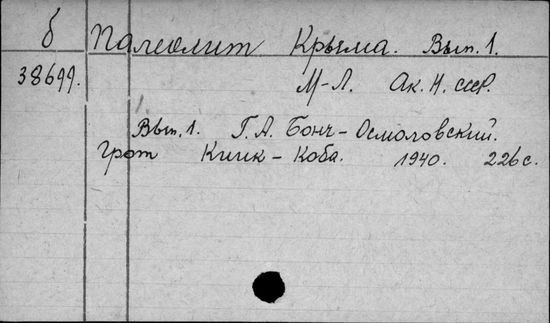 б Палеолит Крыма. Вып. 1.
38699. М-Л. Ак. Н. СССР.
1.
Вып. 1. Г. А. Бонч-Осмоловский.
Грот Киик-Коба. 1940. 226 с.